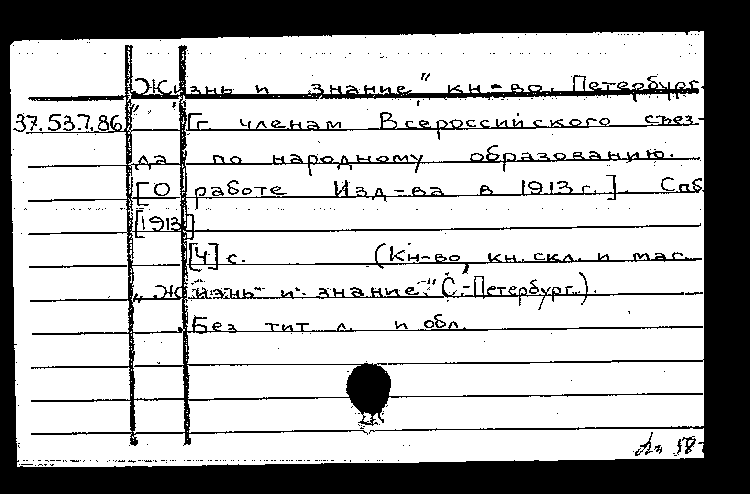 Жизнь и знание" кн-во. Петербург.
37.53.7.86 " Гг. членам Всероссийского съез-
да по народному образованию.
[О работе Изд-ва в 1913 г.]. Спб
[1913]
[4] с. (Кн-во, кн. скл. и маг.
„Жизнь и знание". С.-Петербург.).
Без тит. л. и обл.